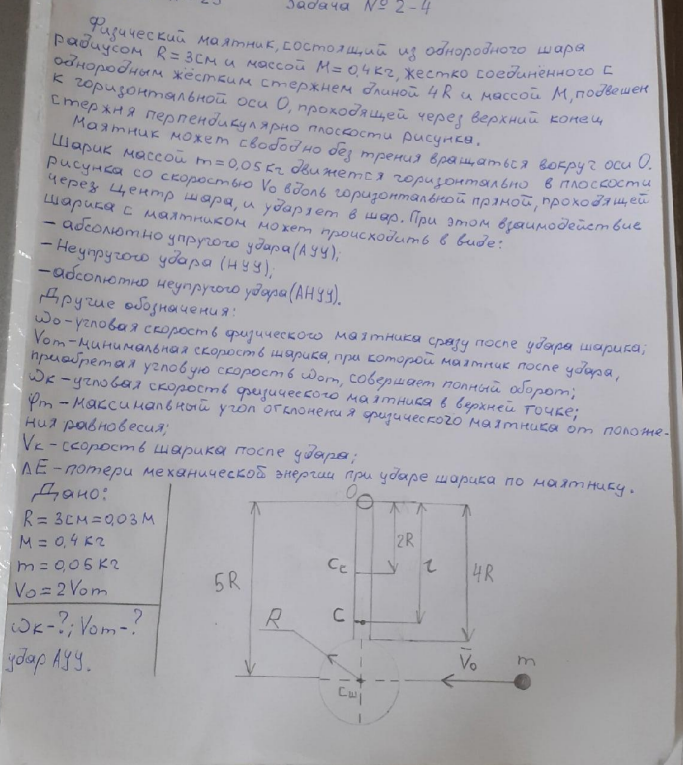 Задача № 2-4
Физический маятник, состоящий из однородного шара
радиусом R = 3см и массой M = 0,4кг, жестко соединённого с
однородным жёстким стержнем длиной 4R и массой M, подвешен
к горизонтальной оси O, проходящей через верхний конец
стержня перпендикулярно плоскости рисунка.
Маятник может свободно без трения вращаться вокруг оси O.
Шарик массой m = 0,05кг движется горизонтально в плоскости
рисунка со скоростью V₀ вдоль горизонтальной прямой, проходящей
через центр шара, и ударяет в шар. При этом взаимодействие
шарика с маятником может происходить в виде:
– абсолютно упругого удара (АУУ);
– Неупругого удара (НУУ);
– абсолютно неупругого удара (АНУУ).
Другие обозначения:
ω₀ - угловая скорость физического маятника сразу после удара шарика;
V₀m - минимальная скорость шарика, при которой маятник после удара,
приобретая угловую скорость ω₀m, совершает полный оборот;
ωк - угловая скорость физического маятника в верхней точке;
φm - максимальный угол отклонения физического маятника от положе-
ния равновесия;
Vк - скорость шарика после удара;
ΔE - потери механической энергии при ударе шарика по маятнику.
Дано:
R = 3см = 0,03м
M = 0,4кг
m = 0,05кг
V₀ = 2V₀m
ωк - ?; V₀m - ?
удар АУУ.
O
2R
Cс
l
4R
5R
C
R
V̄₀
m
Cш